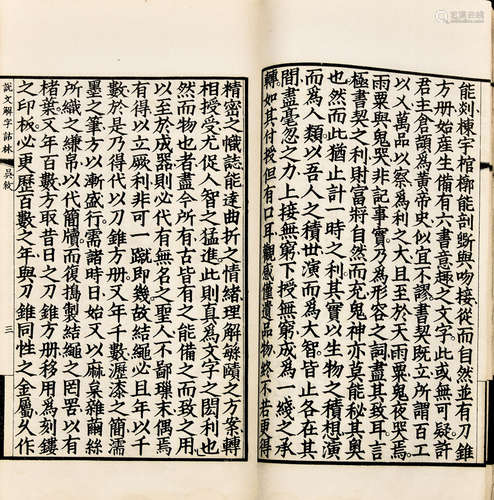 能剡棟宇棺槨能剖斲與吻接從而自然並有刀錐
方冊始産生備有六書意趣之文字此或無可疑許
君主倉頡爲黃帝史似宜不謬書契既立所謂百工
以乂萬品以察爲利之大且至於天雨粟鬼夜哭焉
雨粟與鬼哭非記事實乃爲形容之詞盡其致耳言
極書契之利財富將自然而充鬼神亦莫能秘其奧
也然而此猶止計一時之利其實以生物之積想演
而爲人類以吾人之積世演而爲大智皆止各在其
閒盡毫忽之力上接無窮下授無窮成爲一綫之承
轉如其付授但有口耳觀感僅遺品物終不若更得
精密之幟誌能達曲折之情緒理解賾之方案轉
相授受尤促人智之猛進此則真爲文字之閎利也
然而物也者盡今所有古皆有之能備之而致之用
以至於成器則必代有無名之聖人不鄙璅末偶焉
有得以立厥利非可一蹴即幾故結繩必且年以千
數於是乃得代以刀錐方冊又年千數瀝漆之簡濡
墨之筆方以漸盛行需諸時日始又以麻枲雜繭絲
所織之縑帛以代簡牘而復搗製結繩之罔罟以有
楮葉又年百數方取昔日之刀錐方冊移用爲刻鏤
之印板必更歷百數之年與刀錐同性之金屬乆作
說文解字詁林 吳敘 三